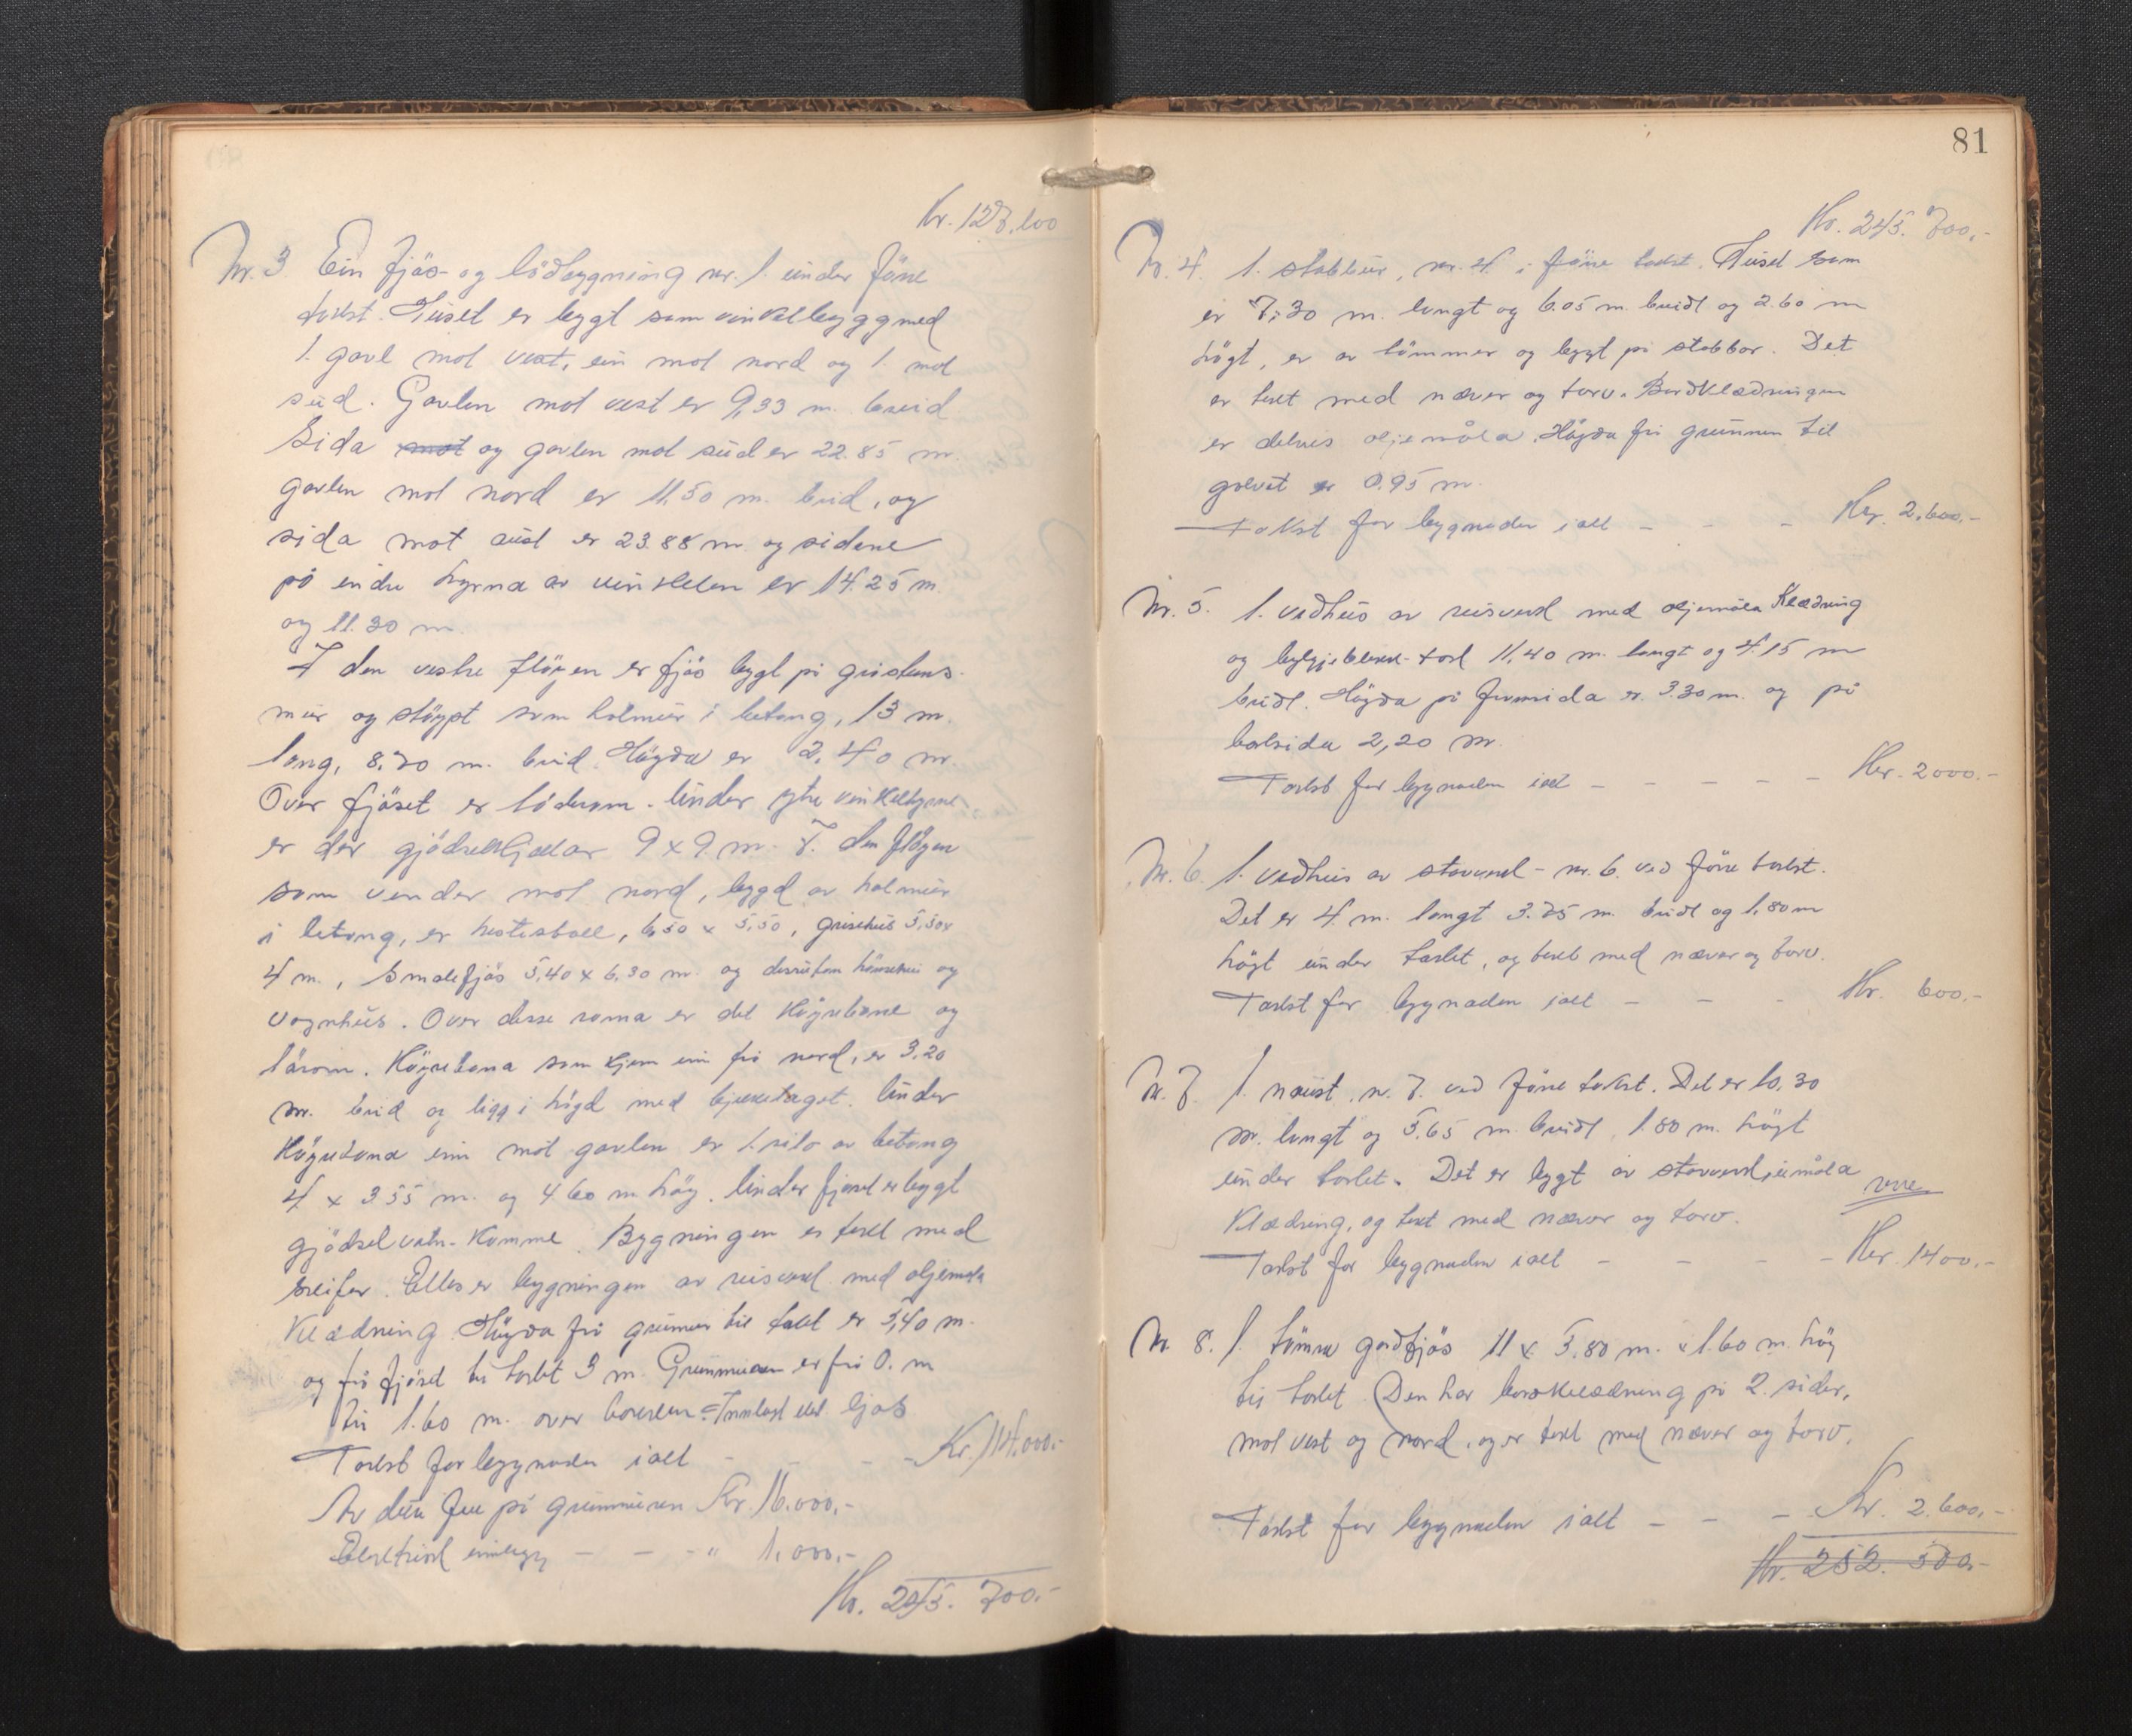 Kr. 127.100
Nr. 3 Ein fjös- og lödbygning nr. 1. under före
takst. Huset er bygt som vinkelbygg med
1. gavl mot vest, ein mot nord og 1. mot
süd. Gavlen mot vest er 9,33 m. breid
Sida mot og gavlen mot süd er 22.85 m.
gavlen mot nord er 11.50 m. breid, og
sida mot aust er 23.88 m. og sidene
på indre hyrna av vinkelen er 14.25 m.
og 11.30 m.
I den vestre flöyen er fjös bygt på gråsteins-
mur og stöypt som holmur i betong, 13 m.
lang, 8.70 m. breid. Högda er 2.40 m.
Over fjöset er löderom. Under ytre vinkelhyrne
er der gjödselkjellar 9 x 9. m. I den flöyen
som vender mot nord, bygd av holmur
i betong, er hestestall, 6,50 x 5,50, grisehus 5,50x
4 m., Smalefjös 5,40 x 6,30 m. og dessutan hönsehus og
vognhus. Over desse roma er det Höyrebane og
lårom. Höyrebana som kjem inn frå nord, er 3.20
m. breid og ligg i högd med bjelkelaget. Under
Höyrebana inn mot gavlen er 1. silo av betong
4 x 3 55 m. og 4.60 m. höy. Under fjöset er bygt
gjödselvatn-Kumme. Bygningen er tekt med
skifer. Elles er bygningen av reisverk med oljemåla
Klædning. Högda frå grunnen til taket er 5,40 m.
og frå fjöset til taket 3 m. Grunnmuren er frå 0. m
til 1.60 m. over bakken = Innlagt elek. ljos
Takst for bygnaden i alt - - - Kr. 114.000.-
Av den fell på grunnmuren Kr. 16.000,-
Elektrisk innlegg - - - " 1.000,-
Kr. 245. 700.-
81
Kr. 245. 700,-
Nr. 4. 1. stabbur, nr. 4. i före takst. Huset som
er 7,30 m. langt og 6.05 m. breidt og 2.60 m
högt, er av tömmer og bygt på stabbar. Det
er tekt med næver og torv. Bordklædningen
er delvis oljemåla. Högda frå grunnen til
golvet er 0.95 m.
Takst for bygnaden i alt - - - Kr. 2.600,-
Nr. 5. 1. vedhus av reisverk med oljemåla Klædning
og bylgjeblekk-tak 11,40 m. langt og 4.15 m
breidt. Högda på framsida er 3.30 m. og på
baksida 2,20 m.
Takst for bygnaden i alt - - - - - Kr. 2000.-
Nr. 6. 1. vedhus av stavverk - nr. 6. ved före takst.
Det er 4. m. langt 3.75 m. breidt og 1,80 m
högt under taket, og tekt med næver og torv.
Takst for bygnaden i alt - - - Kr. 600.-
Nr. 7. 1. naust. nr. 7. ved före takst. Det er 10,30
m. langt og 5.65 m. breidt, 1.80 m. högt
under taket. Det er bygt av stavverk, umåla
Klædning, og tekt med næver og torv.
Takst for bygnaden i alt - - - - Kr. 1400.-
Nr. 8. 1. tömra geitfjös 11 x 5.80 m. x 1.60 m. höy
til taket. Den har bordklædning på 2. sider,
mot vest og nord, og er tekt med næver og torv.
Takst for bygnaden i alt - - - Kr. 2.600,-
Kr. 252. 500,-